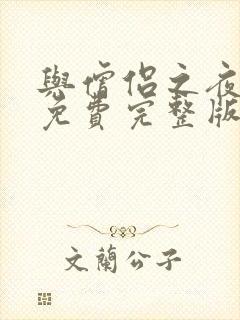 與僧侶之夜
免費完整版
文蘭公子